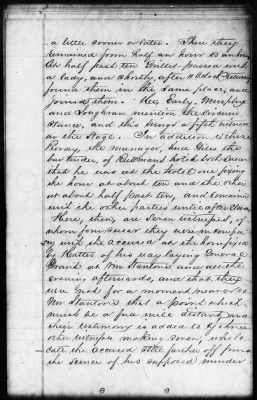 a little sooner or later. There they
remained form half an hour to an hour
At half past ten Gillet passed with
a lady, and shortly after 11 o'clock returned
found them in the same place, and
joined them. He, Early, Murphy
and Loughran mention the circum-
stance, and the three affect
on the stage. In addition to these
Purdy, the manager, and Giles the
bar tender, of Rullmans hotel both swear
that he was at the hotel one fixing
the hour at about ten and the other
at about half past ten, and remained
with the other parties until after eleven.
Here, then, are seven witnesses, of
whom four swear they were in compa-
ny with the accused at the hour fixed
by Matter of his way laying General
Grant at Mr Stantons and all the
evening afterwards, and that they
was not for a moment nearer to
Mr Stantons that a point which
must be a full mile distant and
their testimony is added to by three
other witnesses making seven, who lo-
cate the accused still farther off from
the scene of his supposed murder